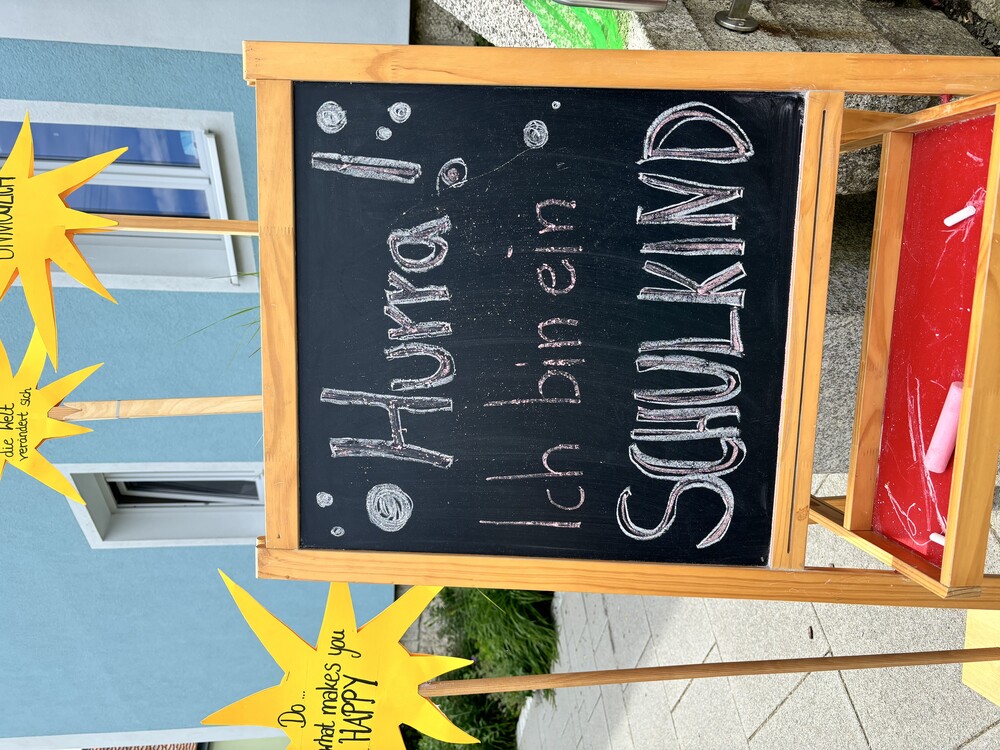 Hurra!
Ich bin ein
SCHULKIND
UNMÖGLICH
die Welt
verändert sich
Do ...
what makes you
HAPPY